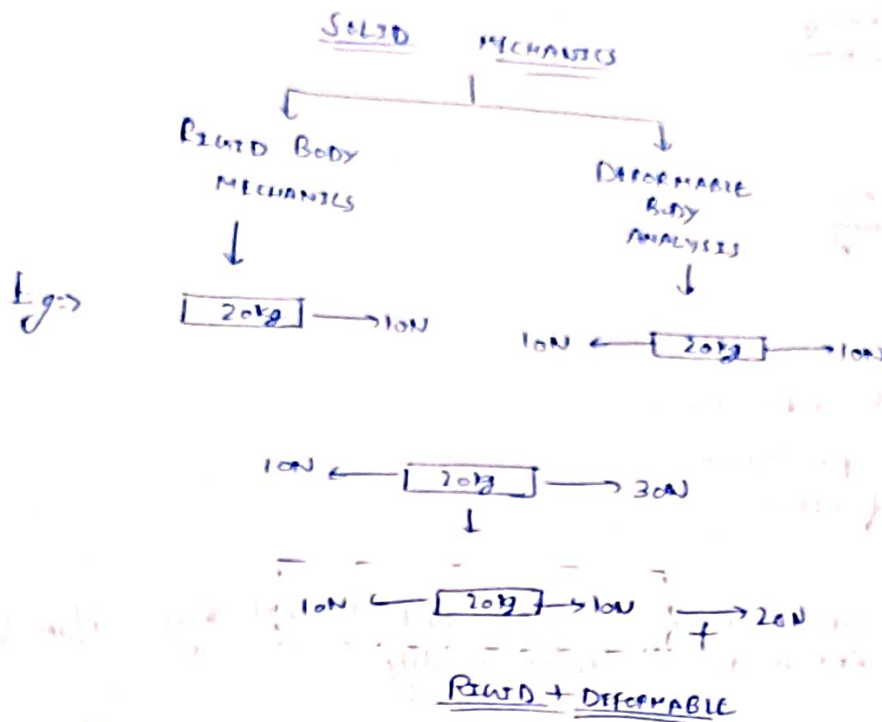 SOLID MECHANICS
RIGID BODY
MECHANICS
DEFORMABLE
BODY
ANALYSIS
Eg:→
20kg → 10N
10N ← 20kg → 10N
10N ← 20kg → 30N
10N ← 20kg → 10N + → 20N
RIGID + DEFORMABLE